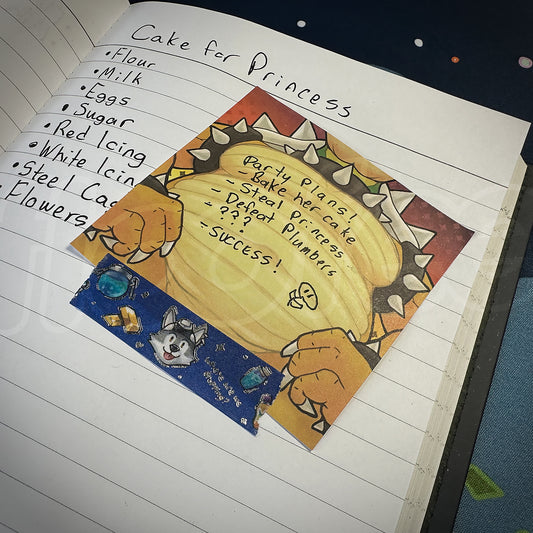 Cake for Princess
• Flour
• Milk
• Eggs
• Sugar
• Red Icing
• White Icin
• Steel Ca
• Flowers
Party Plans!
- Bake her cake
- Steal Princess
- Defeat Plumbers
- ???
- SUCCESS!